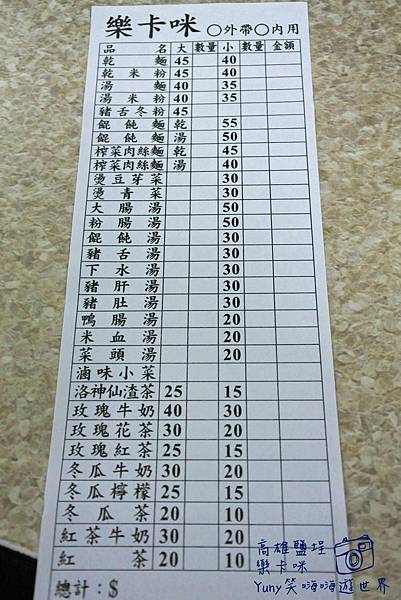 樂卡咪 ○外帶○內用
品名 大 數量 小 數量 金額
乾麵 45 40
乾米粉 45 40
湯麵 40 35
湯米粉 40 35
豬舌冬粉 45
餛飩麵 乾 55
餛飩麵 湯 50
榨菜肉絲麵 乾 45
榨菜肉絲麵 湯 40
燙豆芽菜 30
燙青菜 30
大腸湯 50
粉腸湯 50
餛飩湯 30
豬舌湯 30
下水湯 30
豬肝湯 30
豬肚湯 30
鴨腸湯 20
米血湯 20
菜頭湯 20
滷味小菜
洛神仙渣茶 25 15
玫瑰牛奶 40 30
玫瑰花茶 30 20
玫瑰紅茶 25 15
冬瓜牛奶 30 20
冬瓜檸檬 25 15
冬瓜茶 20 10
紅茶牛奶 30 20
紅茶 20 10
總計：$
高雄鹽埕
樂卡咪
Yuny笑嗨嗨遊世界